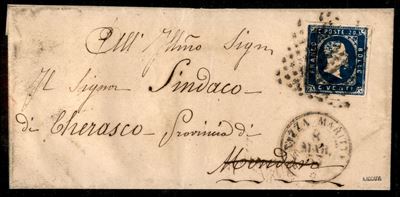 All' Illmo Sign
Il Signor Sindaco
di Cherasco Provincia di
Mondovì
C. POSTE 20
FRANCO
BOLLO
C. VENTI
8
MAR.